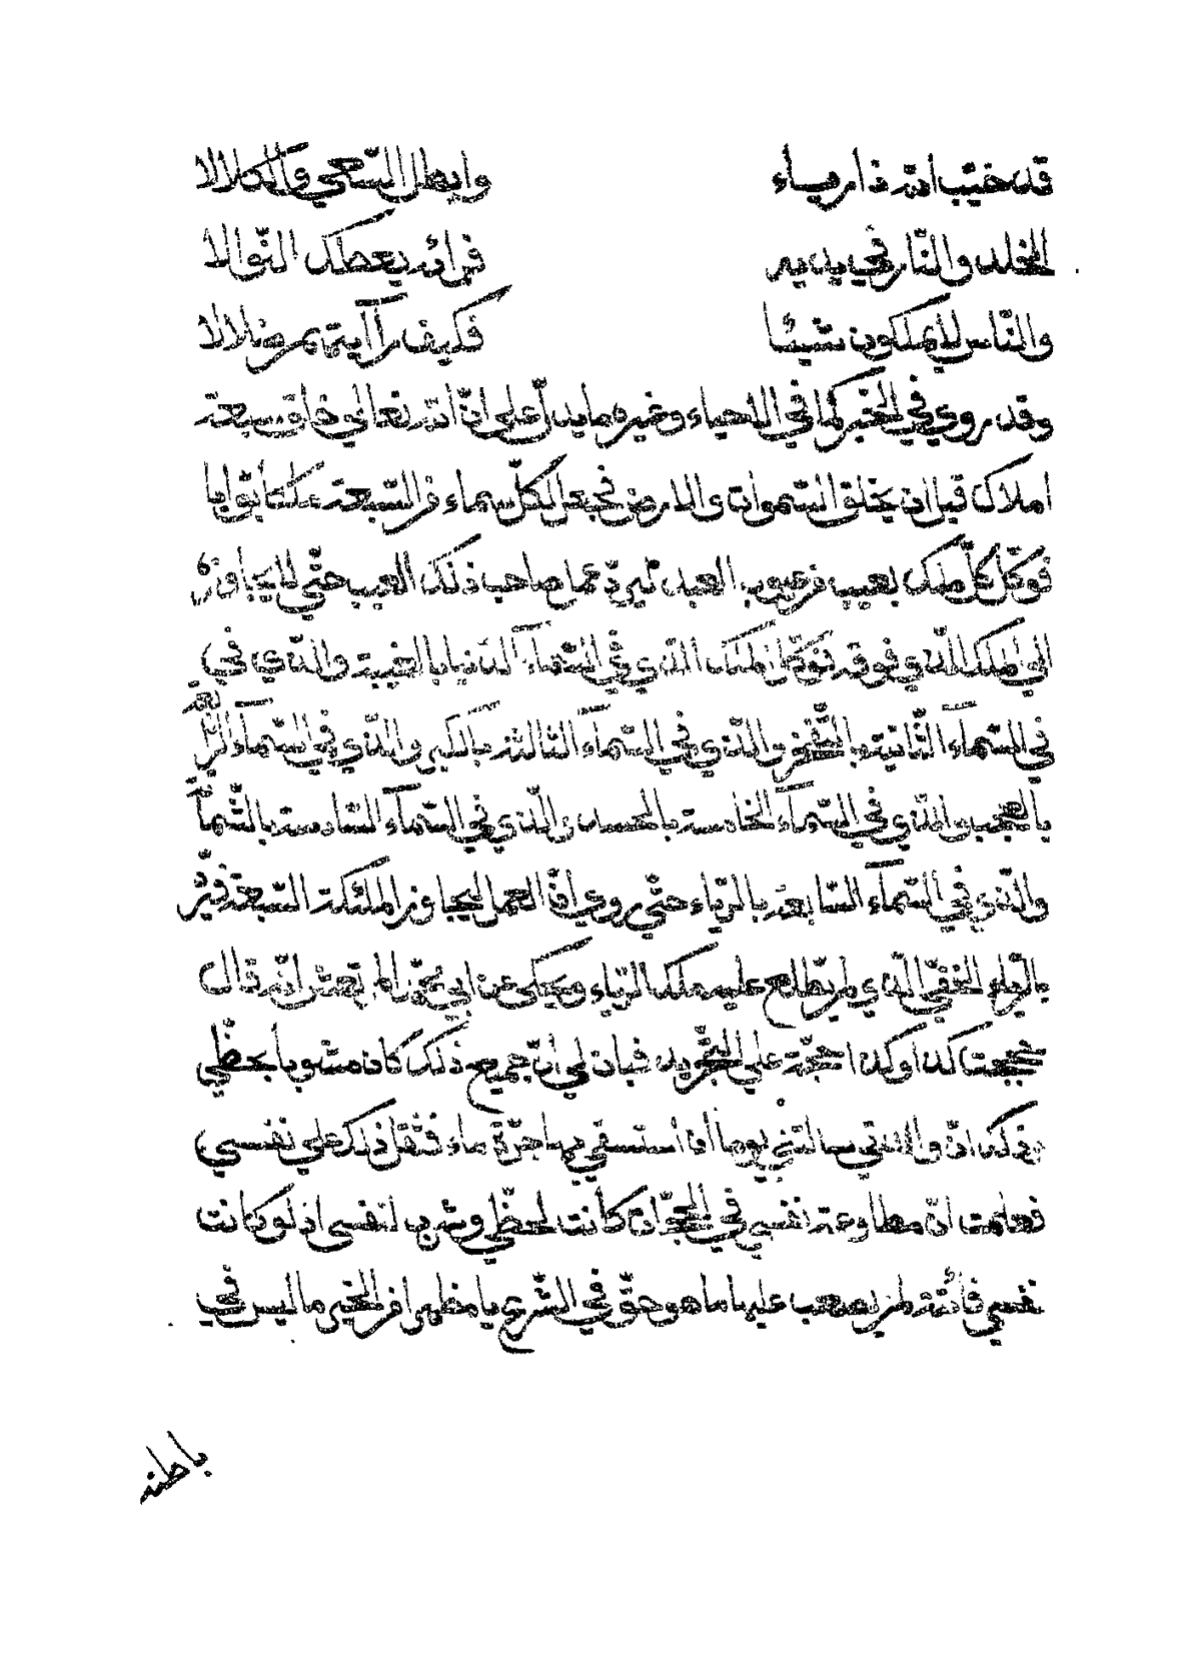 قد خيّب الله ذا رياء وابطل السّعي والكلالا
الخلد والنّار في يديه فرائه يعطك النّوالا
والنّاس لا يملكون شيئا فكيف رآيتهم ضلالا
وقد روي في الخبر كما في الاحياء وغيره ما يدلّ على انّ الله تعالى خلق سبعة
املاك قبل ان يخلق السّموات والارض فجعل لكلّ سماء من السّبعة ملكا بوّابا
فوكّل كلّ ملك بعيب من عيوب العبد ليردّ عمل صاحب ذلك العيب حتّى لا يجاوزه
الى الملك الّذي فوقه فوكّل الملك الذي في السّماء الدّنيا بالغيبة والّذي في
في السّماء الثّانية بالفخر والّذي في السّماء الثالثة بالكبر والّذي في السّماء الرّابعة
بالعجب والّذي في السّماء الخامسة بالحسد والّذي في السّماء السّادسة بالشّماتة
والّذي في السّماء السّابعة بالرّياء حتّى روي انّ العمل ليجاوز الملئكة السّبعة فيردّ
بالرّياء الخفيّ الّذي لم يطّلع عليه ملك الرّياء ويحكى عن ابي محمّد المرتعش انّه قال
حججت كذا وكذا حجّة على التّجريد فبان لي انّ جميع ذلك كان مشوبا بحظّي
وذلك انّ والدتي سالتني يوما أن أستسقي لها جرّة ماء فثقل ذلك على نفسي
فعلمت انّ مطاوعة نفسي في الحجّات كانت لحظّ وشرب لنفسي اذ لو كانت
نفسي فانية لم يصعب عليها ما هو حقّ في الشّرع يا مظهرا من الخير ما ليس في
باطنه